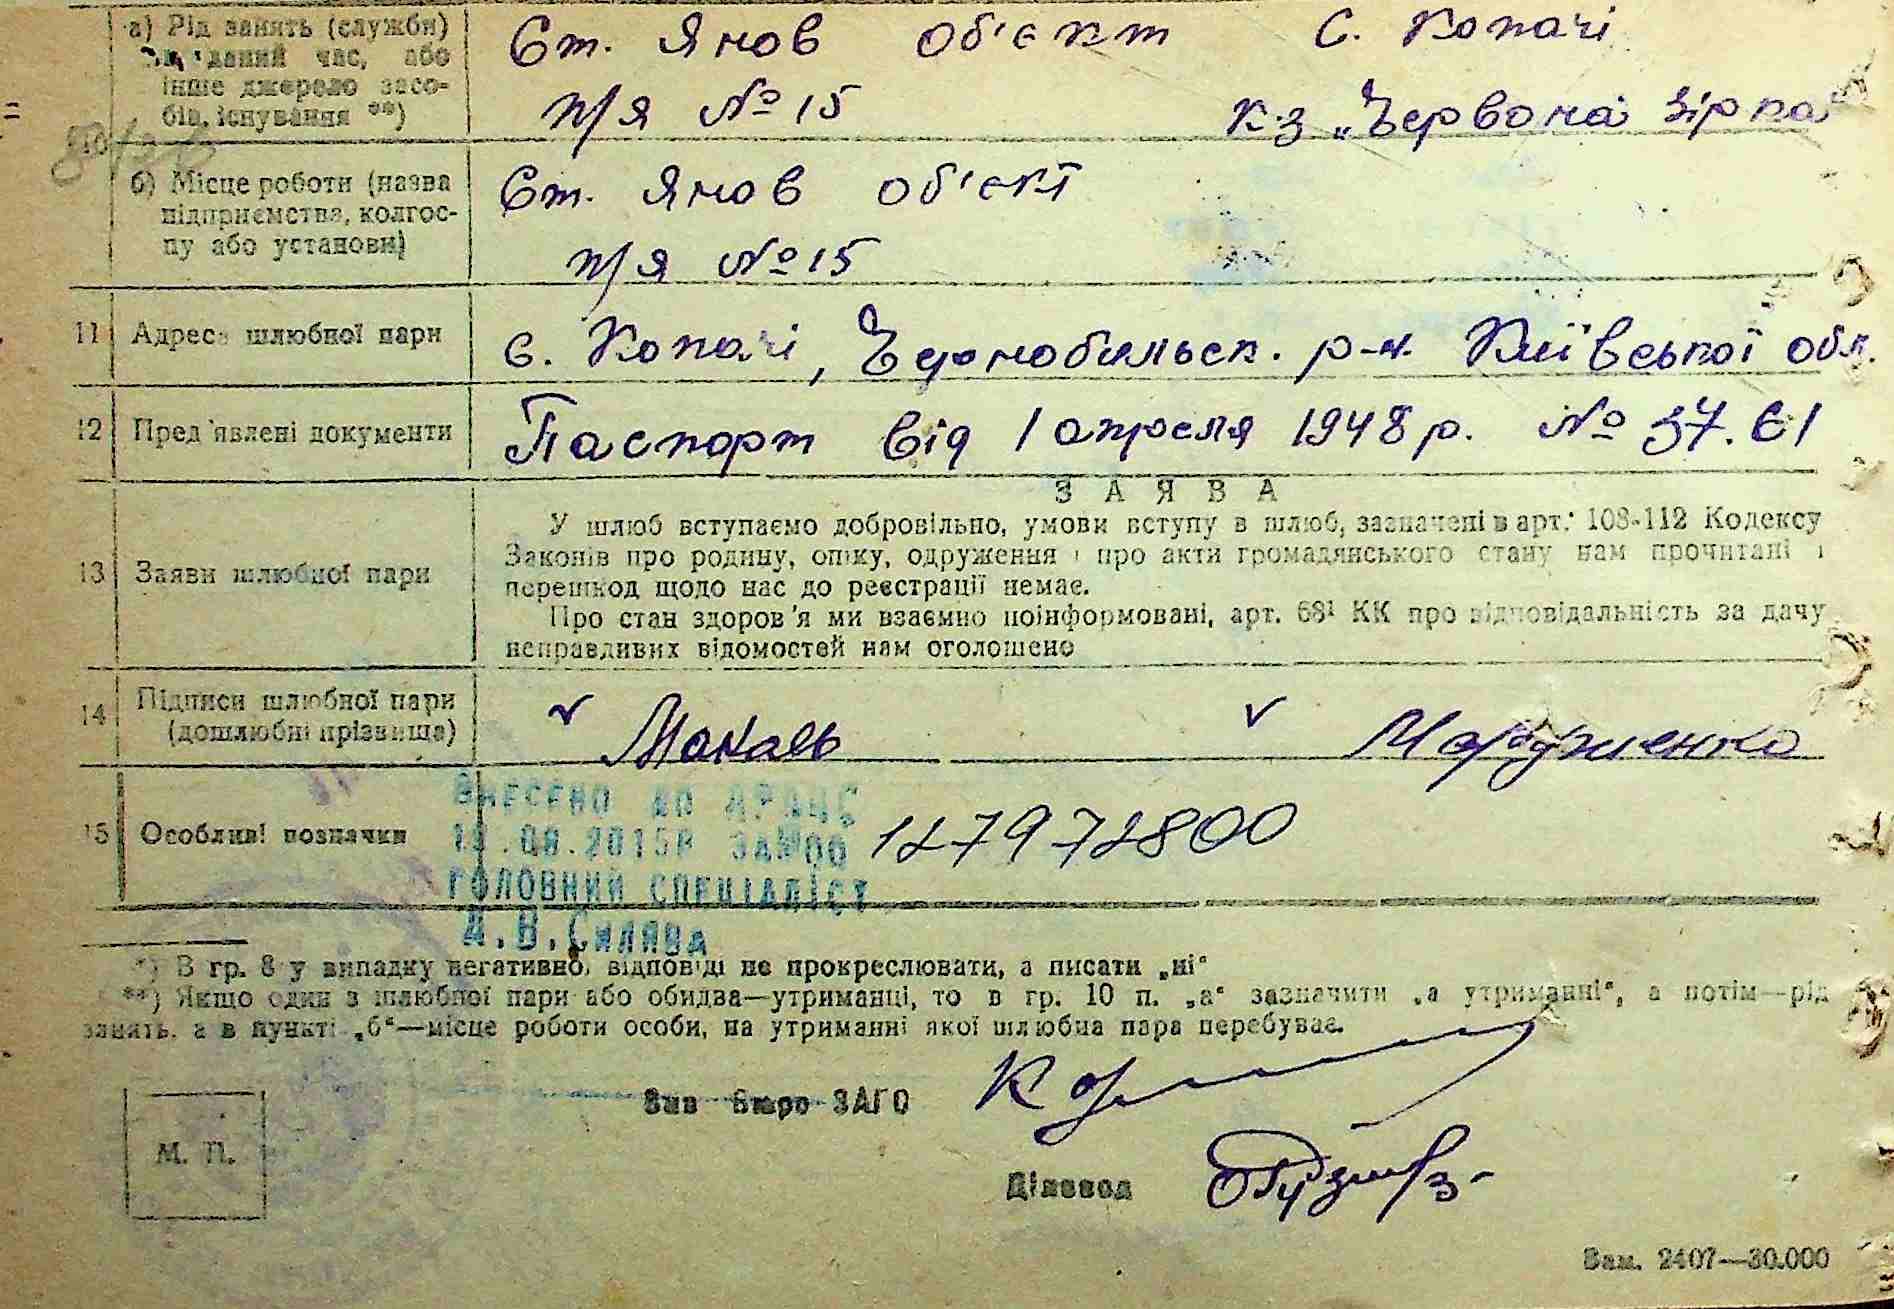 а) Рід занять (служби)
даний час, або
інше джерело засо-
бів існування **)
Ст. Янов об'єкт с. Копачі
п/я № 15 к-з „Червона зірка
10
б) Місце роботи (назва
підприємства, колгос-
пу або установи)
Ст. Янов об'єкт
п/я № 15
11 Адреса шлюбної пари
с. Копачі, Чернобильск. р-н. Київської обл.
12 Пред'явлені документи
Паспорт від 1 апреля 1948 р. № 37.61
ЗАЯВА
13 Заяви шлюбної пари
У шлюб вступаємо добровільно, умови вступу в шлюб, зазначені в арт. 108-112 Кодексу
Законів про родину, опіку, одруження і про акти громадянського стану нам прочитані і
перешкод щодо нас до реєстрації немає.
Про стан здоров'я ми взаємно поінформовані, арт. 68¹ КК про відповідальність за дачу
неправдивих відомостей нам оголошено
14 Підписи шлюбної пари
(дошлюбні прізвища)
Макаль Марущенко
15 Особливі позначки
ВНЕСЕНО ДО ДРАЦС
.08.2015Р ЗА №00 127972800
ГОЛОВНИЙ СПЕЦІАЛІСТ
А.В.Силява
*) В гр. 8 у випадку негативної відповіді не прокреслювати, а писати „ні“
**) Якщо один з шлюбної пари або обидва—утриманці, то в гр. 10 п. „а“ зазначити „а утриманні“, а потім—рід
занять, а в пункті „б“—місце роботи особи, на утриманні якої шлюбна пара перебуває.
Зав бюро ЗАГС
М. П.
Діловод
Зам. 2407—30.000